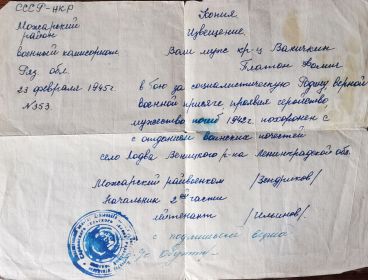 СССР-НКР
Можарский
район
военный комисариат
Ряз. обл.
23 февраля 1945г.
№ 353
Копия
Извещение.
Ваш муж кр-ц Вакичкин
Платон
в бою за социалистическую Родину верной
военной присяге проявив геройство
мужество погиб 1942г. похоронен с
с отданием воинских почестей
село Лодва Веницкого р-на Ленинградской обл.
Можарский райвоенком
Начальник 2ой части
лейтенант
с подлинным верно